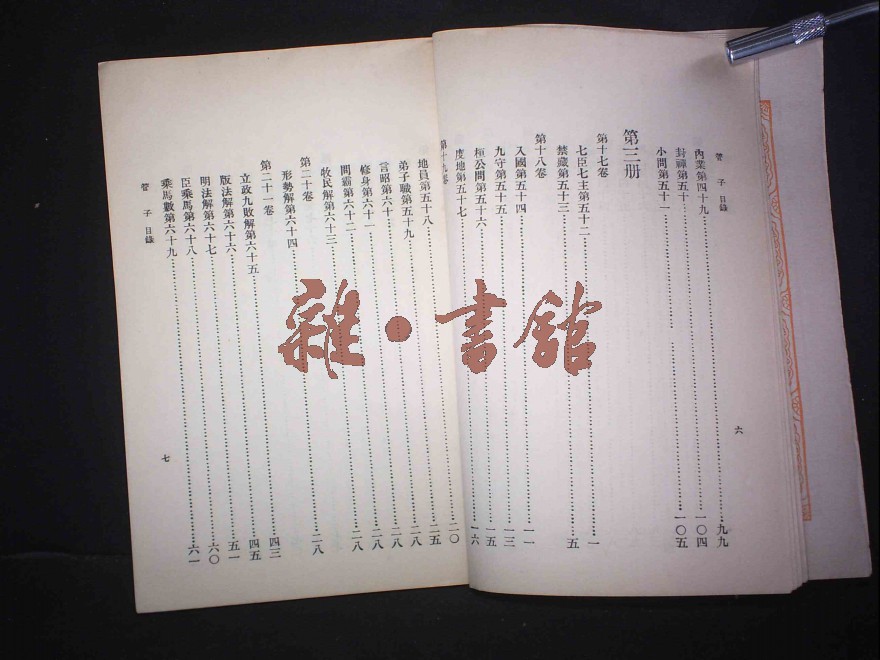 管子目錄
內業第四十九……九九
封禪第五十……一〇四
小問第五十一……一〇五
第三册
第十七卷
七臣七主第五十二……一
禁藏第五十三……五
第十八卷
入國第五十四……一一
九守第五十五……一三
桓公問第五十六……一五
度地第五十七……一六
六
第十九卷
地員第五十八……二〇
弟子職第五十九……二五
言昭第六十……二八
修身第六十一……二八
問霸第六十二……二八
牧民解第六十三……二八
第二十卷
形勢解第六十四……二八
第二十一卷
立政九敗解第六十五……四三
版法解第六十六……四五
明法解第六十七……五一
臣乘馬第六十八……六〇
乘馬數第六十九……六一
管子目錄
七
雜·書館